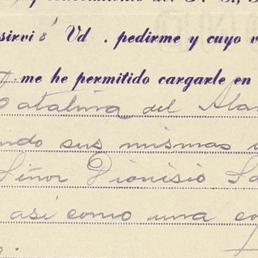 sirvió Vd. pedirme y cuyo v
me he permitido cargarle en
Catalina del Ala
ndo sus mismas
Señor Dionisio Sa
así como una co